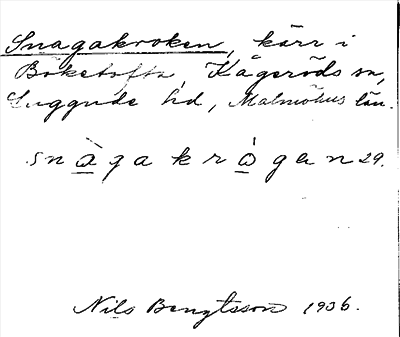 Snagakroken, kärr i
Böketofta, Kågeröds sn,
Luggude hd, Malmöhus län.
snàgakrógan 29.
Nils Bengtsson 1936.